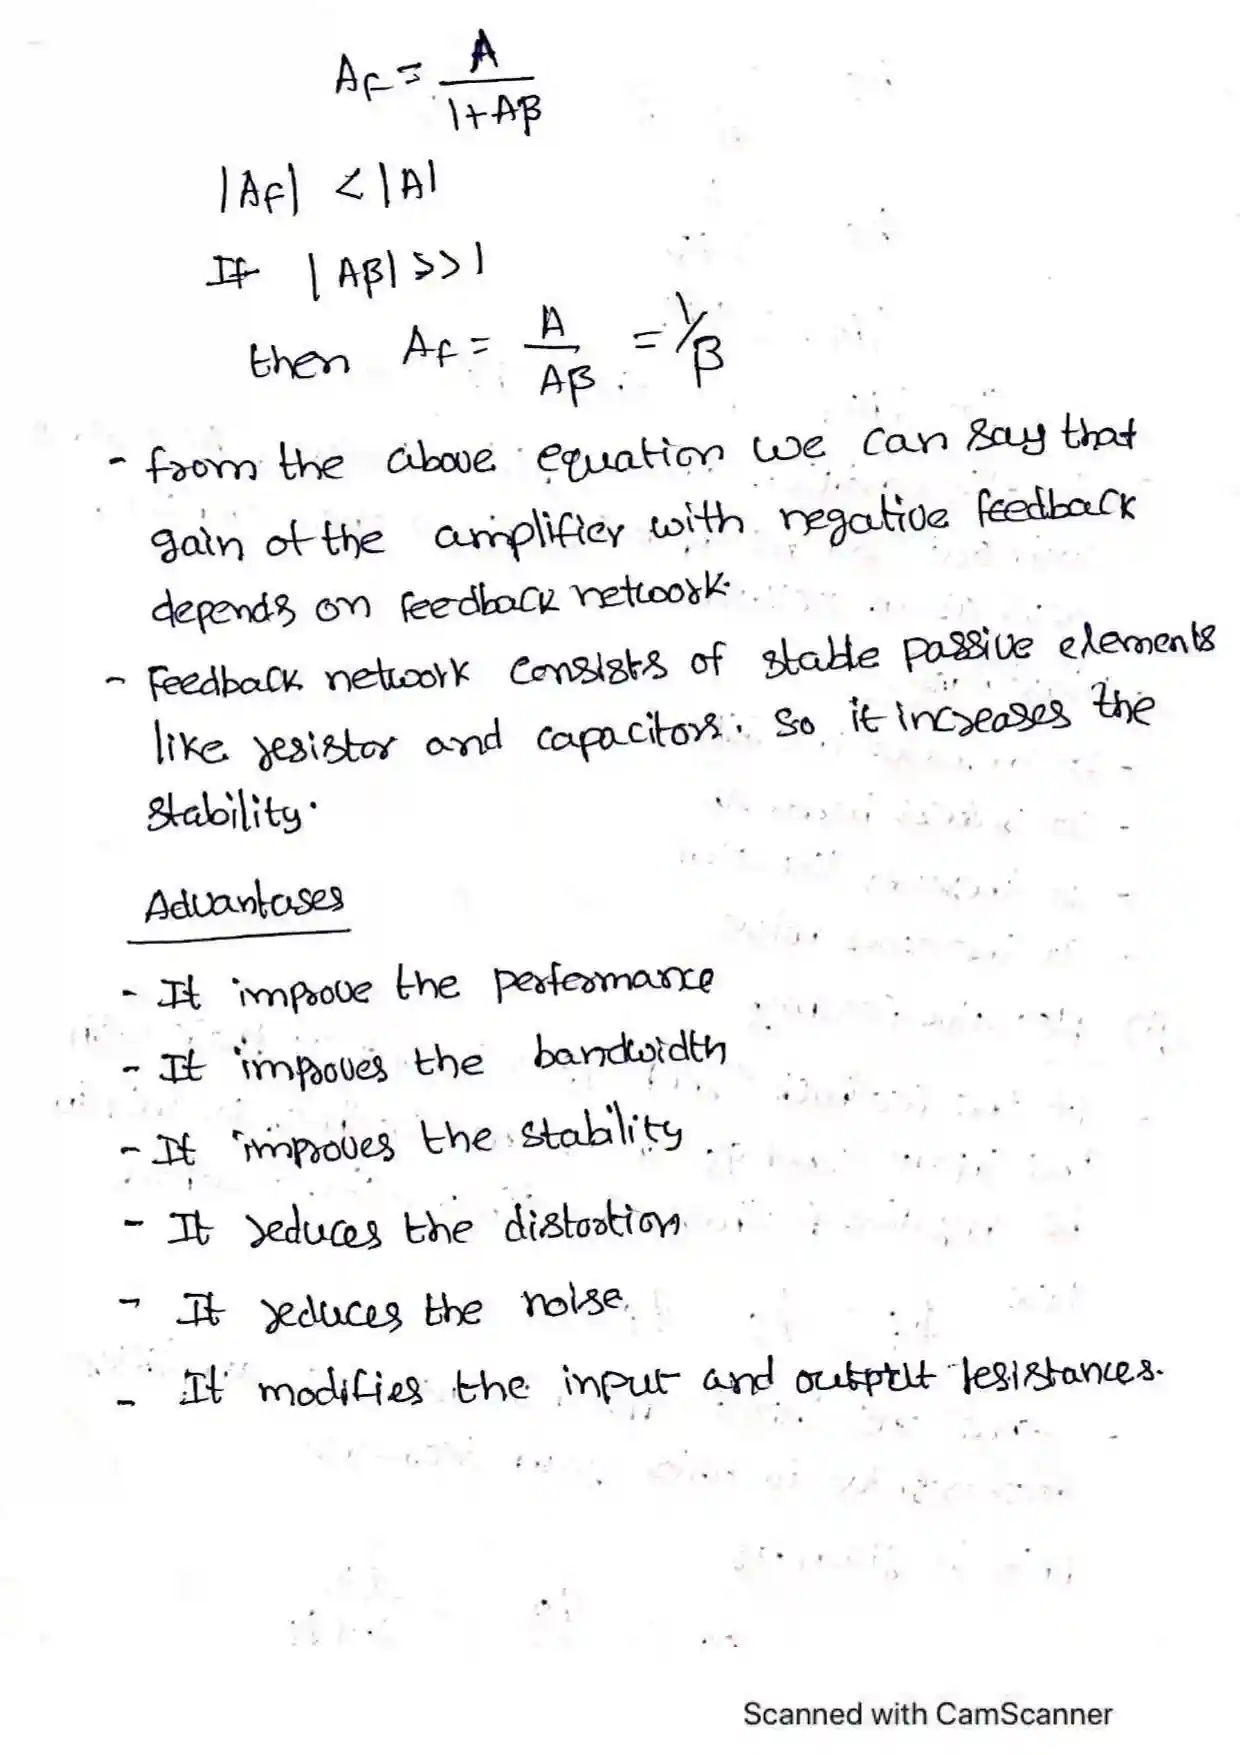 AF = A / 1+Aβ
|AF| < |A|
If |Aβ| >> 1
then AF = A / Aβ = 1/β
- from the above equation we can say that
gain of the amplifier with negative feedback
depends on feedback network.
- Feedback network consists of stable passive elements
like resistor and capacitors. So it increases the
stability.
Advantases
- It improve the performance
- It improves the bandwidth
- It improves the stability
- It reduces the distortion
- It reduces the noise
- It modifies the input and output resistances.
Scanned with CamScanner